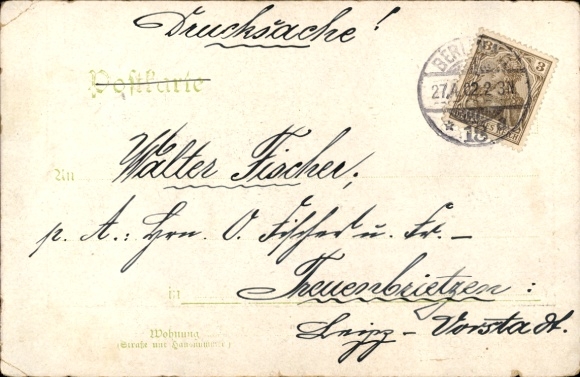 Drucksache!
Postkarte
BERLIN
3
27.4.02.2-3N.
* 18
An
Walter Fischer,
p. A.: Hrn. O. Fischer u. Fr. –
in
Treuenbrietzen:
Leipz – Vorstadt.
Wohnung
(Straße und Hausnummer)